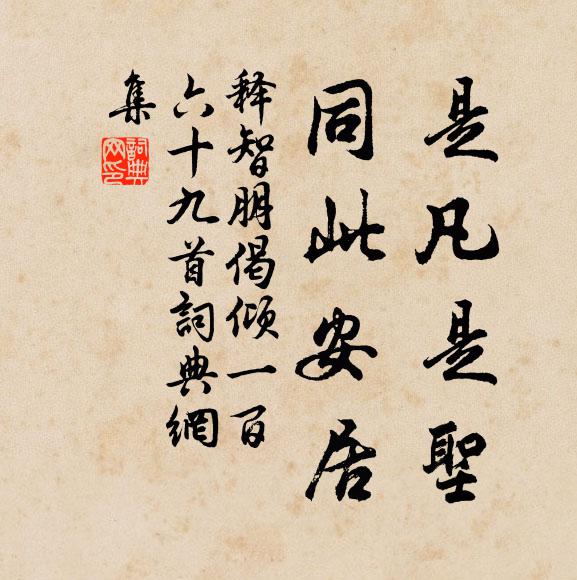 是凡是聖
同此安居
释智朋偈倾一百
六十九首詞典網
集
詞典
网印